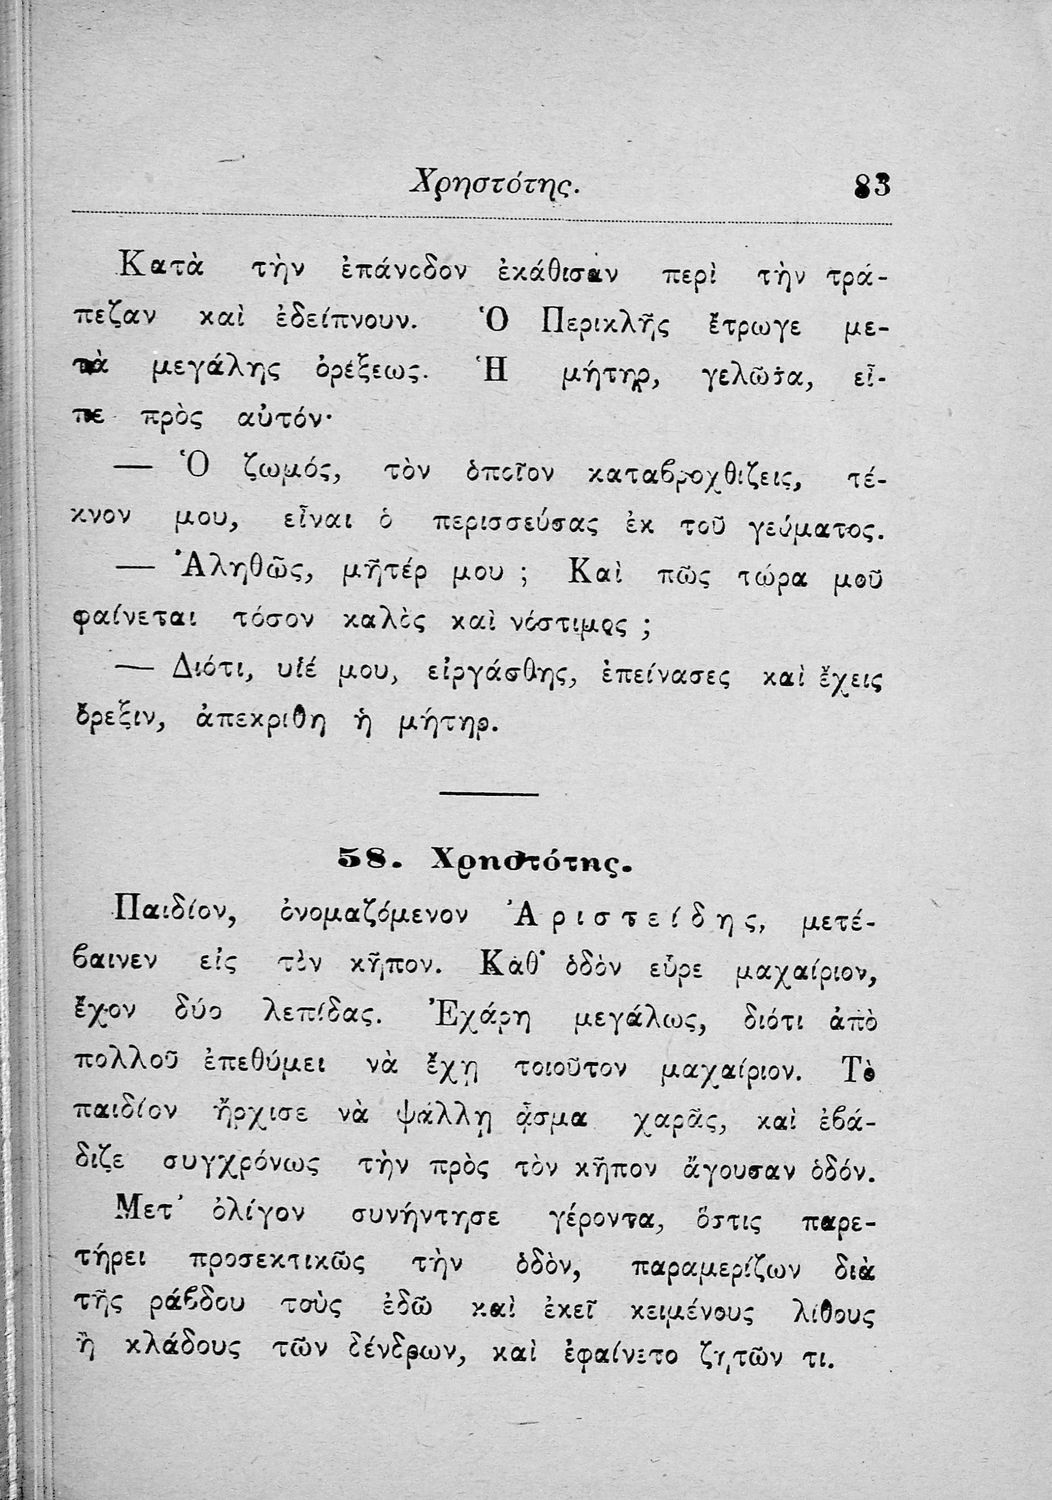 Χρηστότης. 83
Κατὰ τὴν ἐπάνοδον ἐκάθισαν περὶ τὴν τρά-
πεζαν καὶ ἐδείπνουν. Ὁ Περικλῆς ἔτρωγε με-
τὰ μεγάλης ὀρέξεως. Ἡ μήτηρ, γελῶσα, εἶ-
πε πρὸς αὐτόν·
— Ὁ ζωμός, τὸν ὁποῖον καταβροχθίζεις, τέ-
κνον μου, εἶναι ὁ περισσεύσας ἐκ τοῦ γεύματος.
— Ἀληθῶς, μῆτέρ μου ; Καὶ πῶς τώρα μοῦ
φαίνεται τόσον καλὸς καὶ νόστιμος ;
— Διότι, υἱέ μου, εἰργάσθης, ἐπείνασες καὶ ἔχεις
ὄρεξιν, ἀπεκρίθη ἡ μήτηρ.
58. Χρηστότης.
Παιδίον, ὀνομαζόμενον Ἀριστείδης, μετέ-
βαινεν εἰς τὸν κῆπον. Καθ' ὁδὸν εὗρε μαχαίριον,
ἔχον δύο λεπίδας. Ἐχάρη μεγάλως, διότι ἀπὸ
πολλοῦ ἐπεθύμει νὰ ἔχῃ τοιοῦτον μαχαίριον. Τὸ
παιδίον ἤρχισε νὰ ψάλλῃ ᾆσμα χαρᾶς, καὶ ἐβά-
διζε συγχρόνως τὴν πρὸς τὸν κῆπον ἄγουσαν ὁδόν.
Μετ' ὀλίγον συνήντησε γέροντα, ὅστις παρε-
τήρει προσεκτικῶς τὴν ὁδὸν, παραμερίζων διὰ
τῆς ράβδου τοὺς ἐδῶ καὶ ἐκεῖ κειμένους λίθους
ἢ κλάδους τῶν δένδρων, καὶ ἐφαίνετο ζητῶν τι.